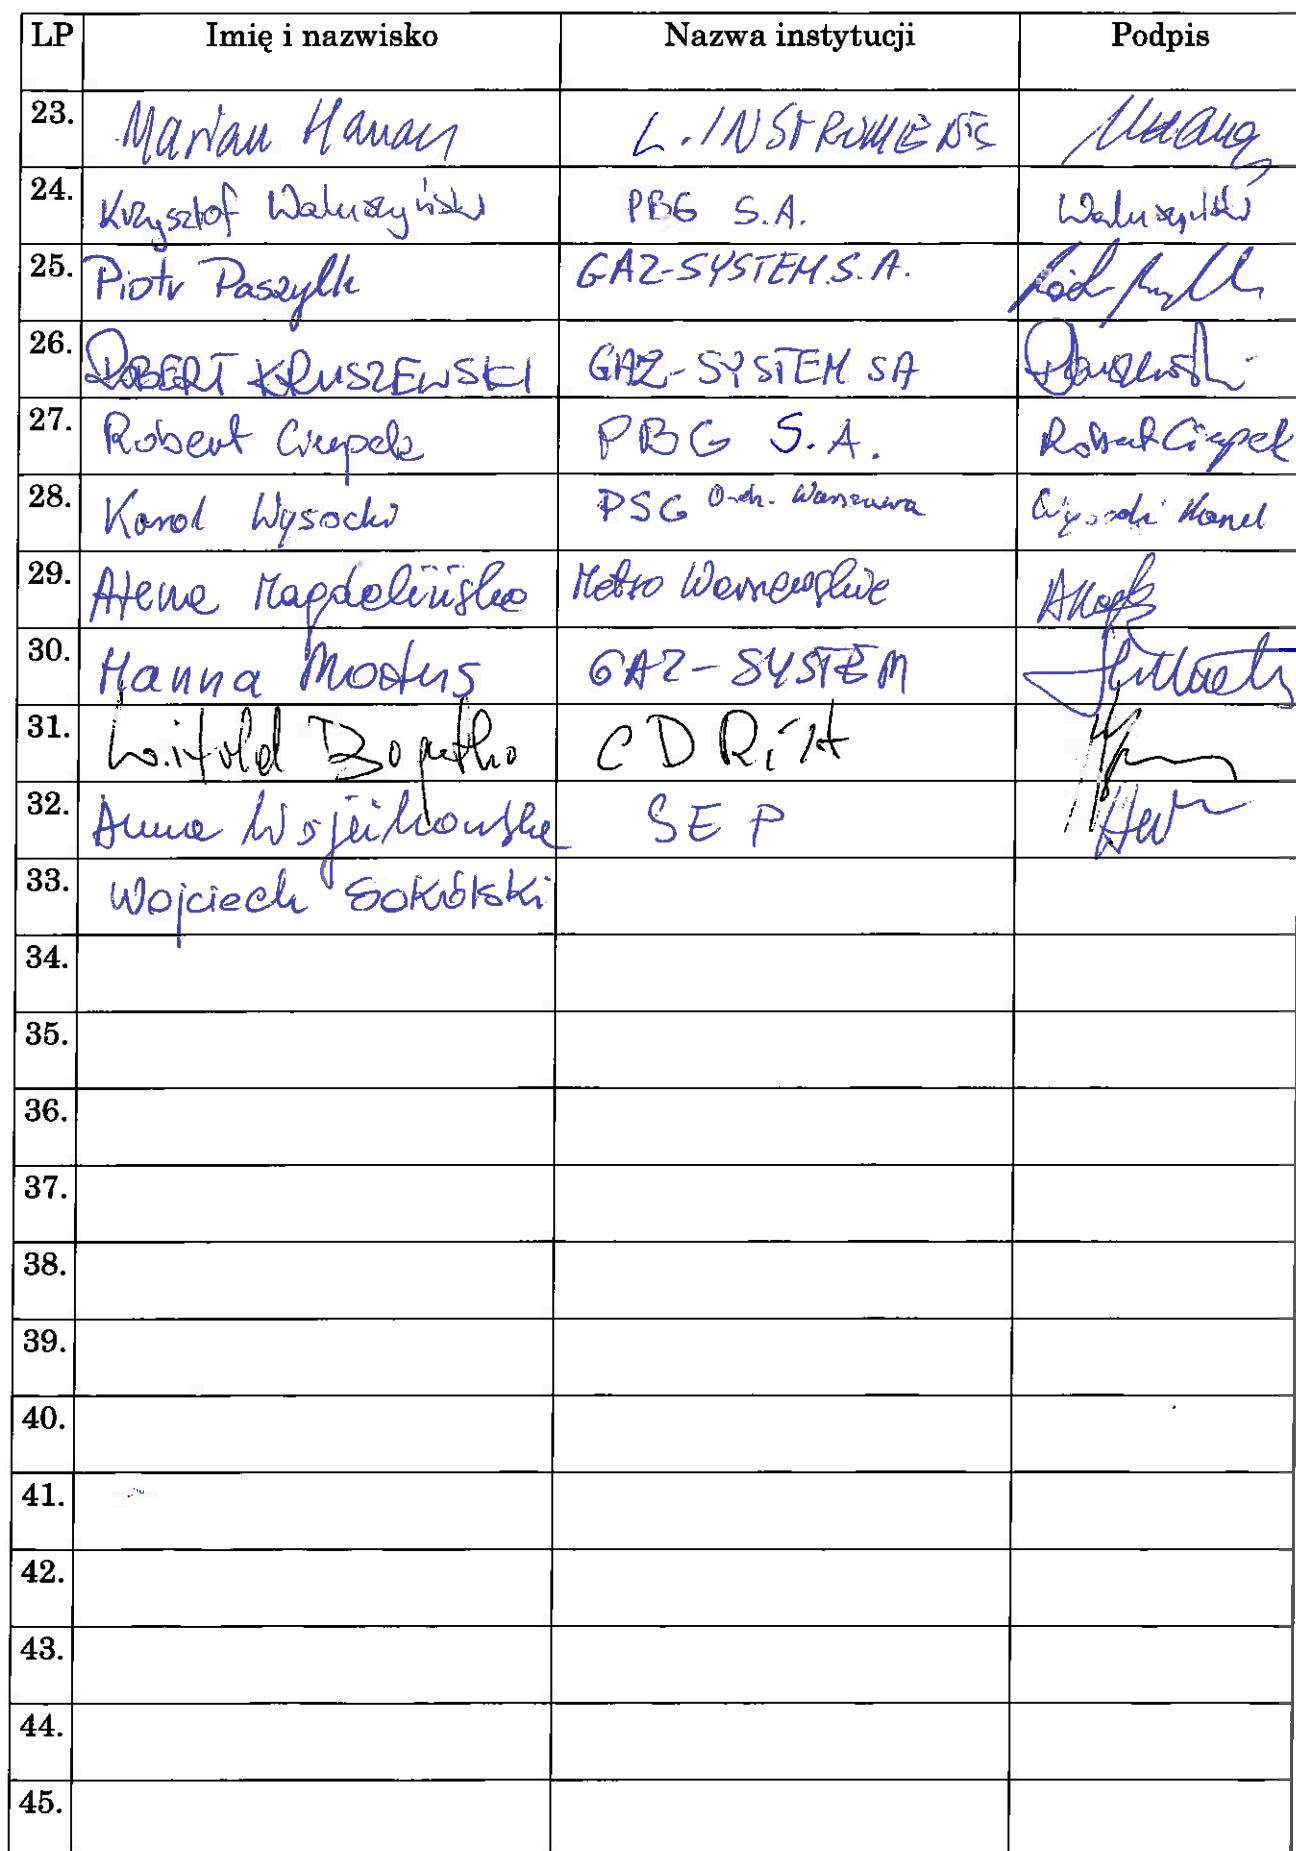 LP Imię i nazwisko Nazwa instytucji Podpis
23. Marian Hanas L.INSTRUMENTS
24. Krzysztof Waluszyński PBG S.A. Waluszyński
25. Piotr Paszylk GAZ-SYSTEM S.A.
26. ROBERT KRUSZEWSKI GAZ-SYSTEM SA
27. Robert Ciepek PBG S.A. Robert Ciepek
28. Karol Wysocki PSG Warszawa Wysocki Karol
29. Magdalińska Metro Warszawskie
30. Hanna GAZ-SYSTEM
31. Witold CDRiA
32. Anna Wojcikowska SEP
33. Wojciech Sokólski
34.
35.
36.
37.
38.
39.
40.
41.
42.
43.
44.
45.